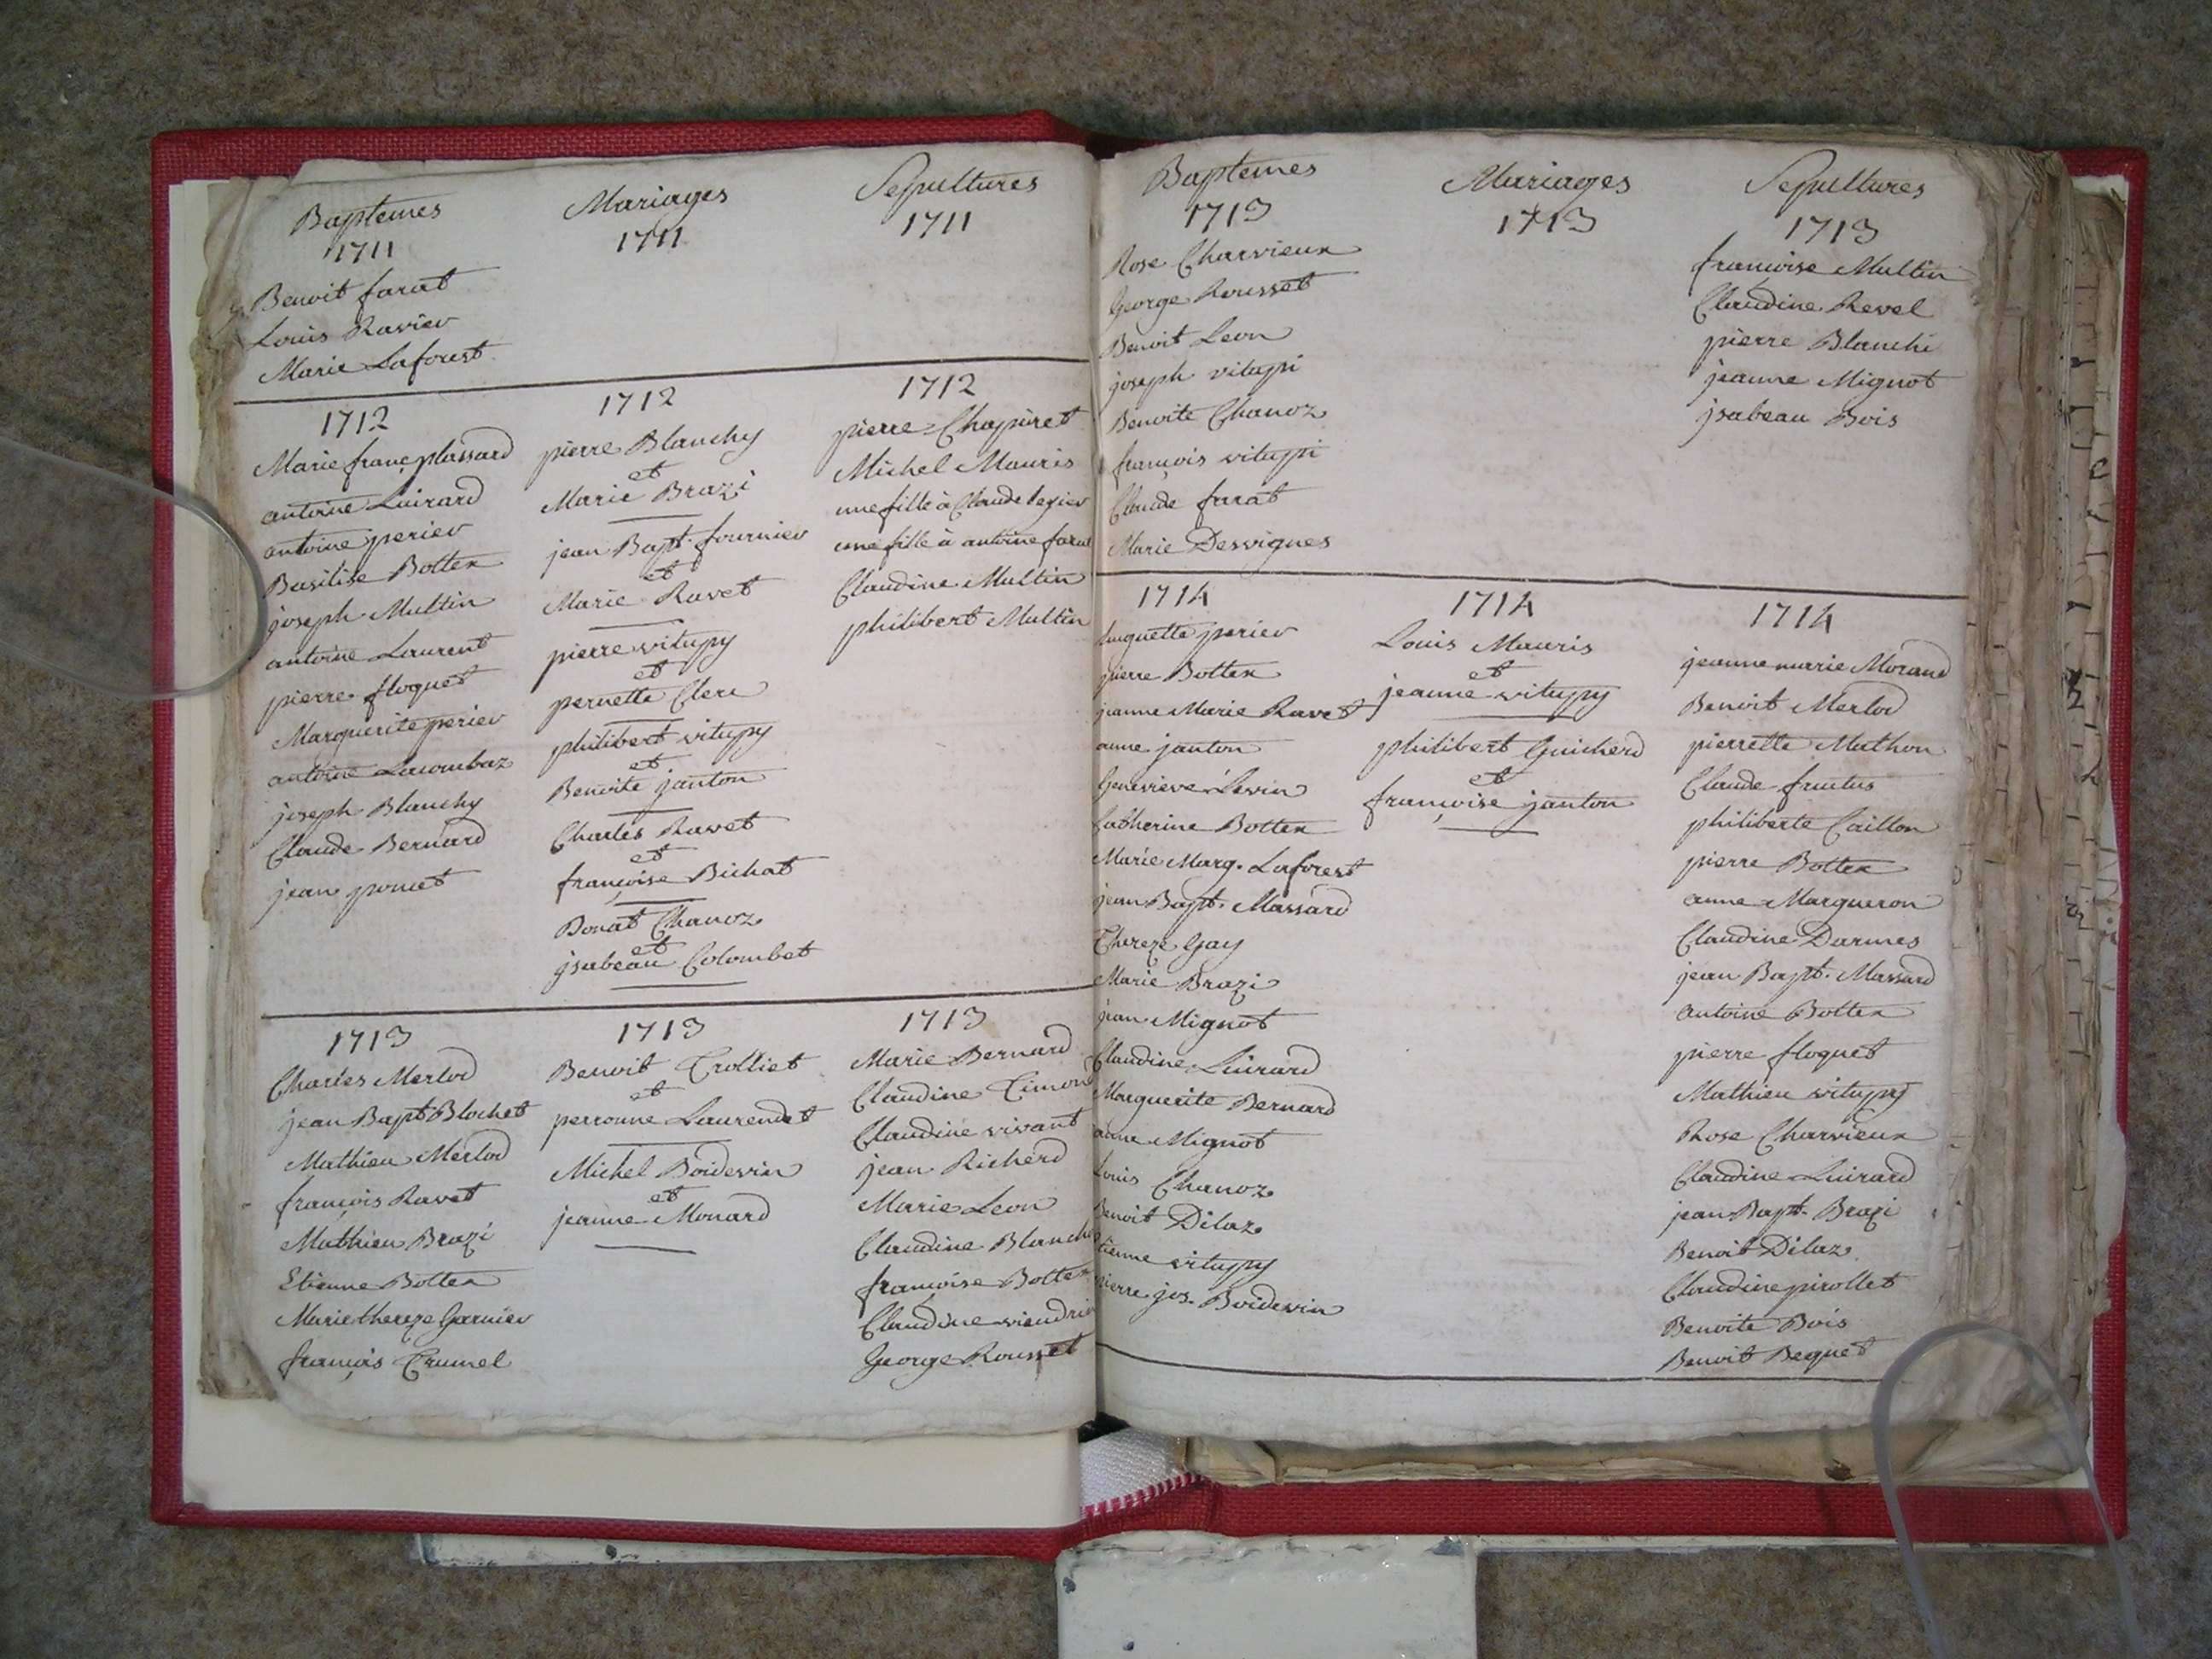 Baptemes
1711
Benoit farat
Louis Ravier
Marie Laforest
Mariages
1711
Sepultures
1711
1712
Marie franç plassard
antoine Luirard
antoine perier
Basilise Bottex
joseph Multin
antoine Laurent
pierre floquet
Marguerite perier
antoine Lacombaz
joseph Blanchy
Claude Bernard
jean poncet
1712
pierre Blanchy
et
Marie Brazi
jean Bapt. fournier
et
Marie Ravet
pierre vitupy
et
pernette Clerc
philibert vitupy
et
Benoite janton
Charles Ravet
et
françoise Bichat
Donat Chanoz
et
jsabeau Colombet
1712
pierre Chapuret
Michel Mauris
une fille à Claude
une fille à antoine farat
Claudine Multin
philibert Multin
1713
Charles Merlod
jean Bapt Blochet
Mathieu Merlod
françois Ravet
Mathieu Brazi
Etienne Bottex
Marie thereze Garnier
françois Trumel
1713
Benoit Trolliet
et
perronne Laurendet
Michel Boidevin
et
jeanne Monard
1713
Marie Bernard
Claudine Timond
Claudine vivant
jean Richerd
Marie Leon
Claudine Blanchy
françoise Bottex
Claudine
George Rousset
Baptemes
1713
Rose Charvieux
George Rousset
Benoit Leon
joseph vitupi
Benoite Chanoz
françois vitupi
Claude farat
Marie Desvignes
Mariages
1713
Sepultures
1713
françoise Multin
Claudine Revel
pierre Blanchi
jeanne Mignot
jsabeau Bois
1714
huguette perier
pierre Bottex
jeanne Marie Ravet
anne janton
Genevieve Levin
Catherine Bottex
Marie Marg. Laforest
jean Bapt. Massard
Thereze Gay
Marie Brazi
jean Mignot
Claudine Luirard
Marguerite Bernard
anne Mignot
Louis Chanoz
Benoit Dilaz
Etienne vitupy
pierre jos. Boidevin
1714
Louis Mauris
et
jeanne vitupy
philibert Guicherd
et
françoise janton
1714
jeanne marie Morand
Benoit Merlod
pierrette Mathon
Claude fructus
philiberte Caillon
pierre Bottex
anne Margueron
Claudine Darmes
jean Bapt. Massard
antoine Bottex
pierre floquet
Mathieu vitupy
Rose Charvieux
Claudine Luirard
jean Bapt. Brazi
Benoit Dilaz
Claudine pirollet
Benoite Bois
Benoit Bequet